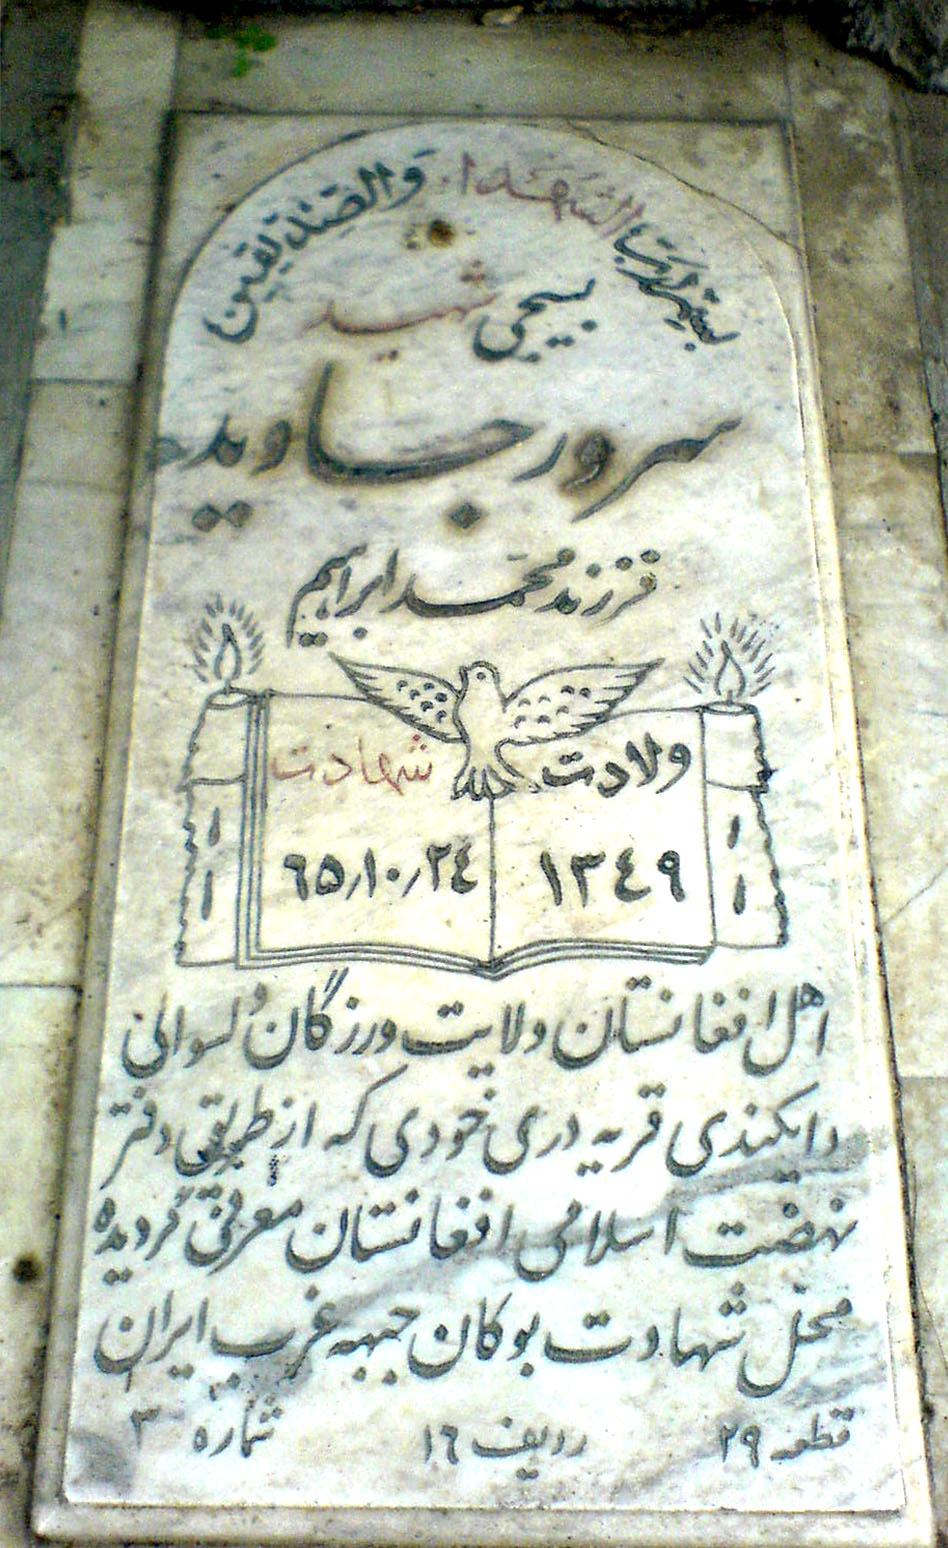 بسم رب الشهداء والصدیقین
بسیجی شهید
سرور جاوید
فرزند محمد ابراهیم
ولادت شهادت
۱۳٤۹ ٦۵٫۱۰٫۲٤
اهل افغانستان ولایت ورزگان لسوالی
دایکندی قریه دری خودی که از طریق دفتر
نهضت اسلامی افغانستان معرفی گردیده
محل شهادت بوکان جبهه غرب ایران
قطعه ۲۹ ردیف ۱٦ شماره ۳